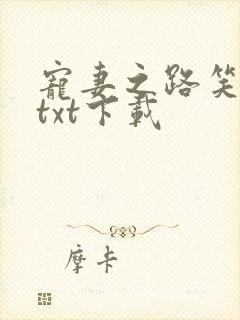 寵妻之路笑
txt下載
摩卡